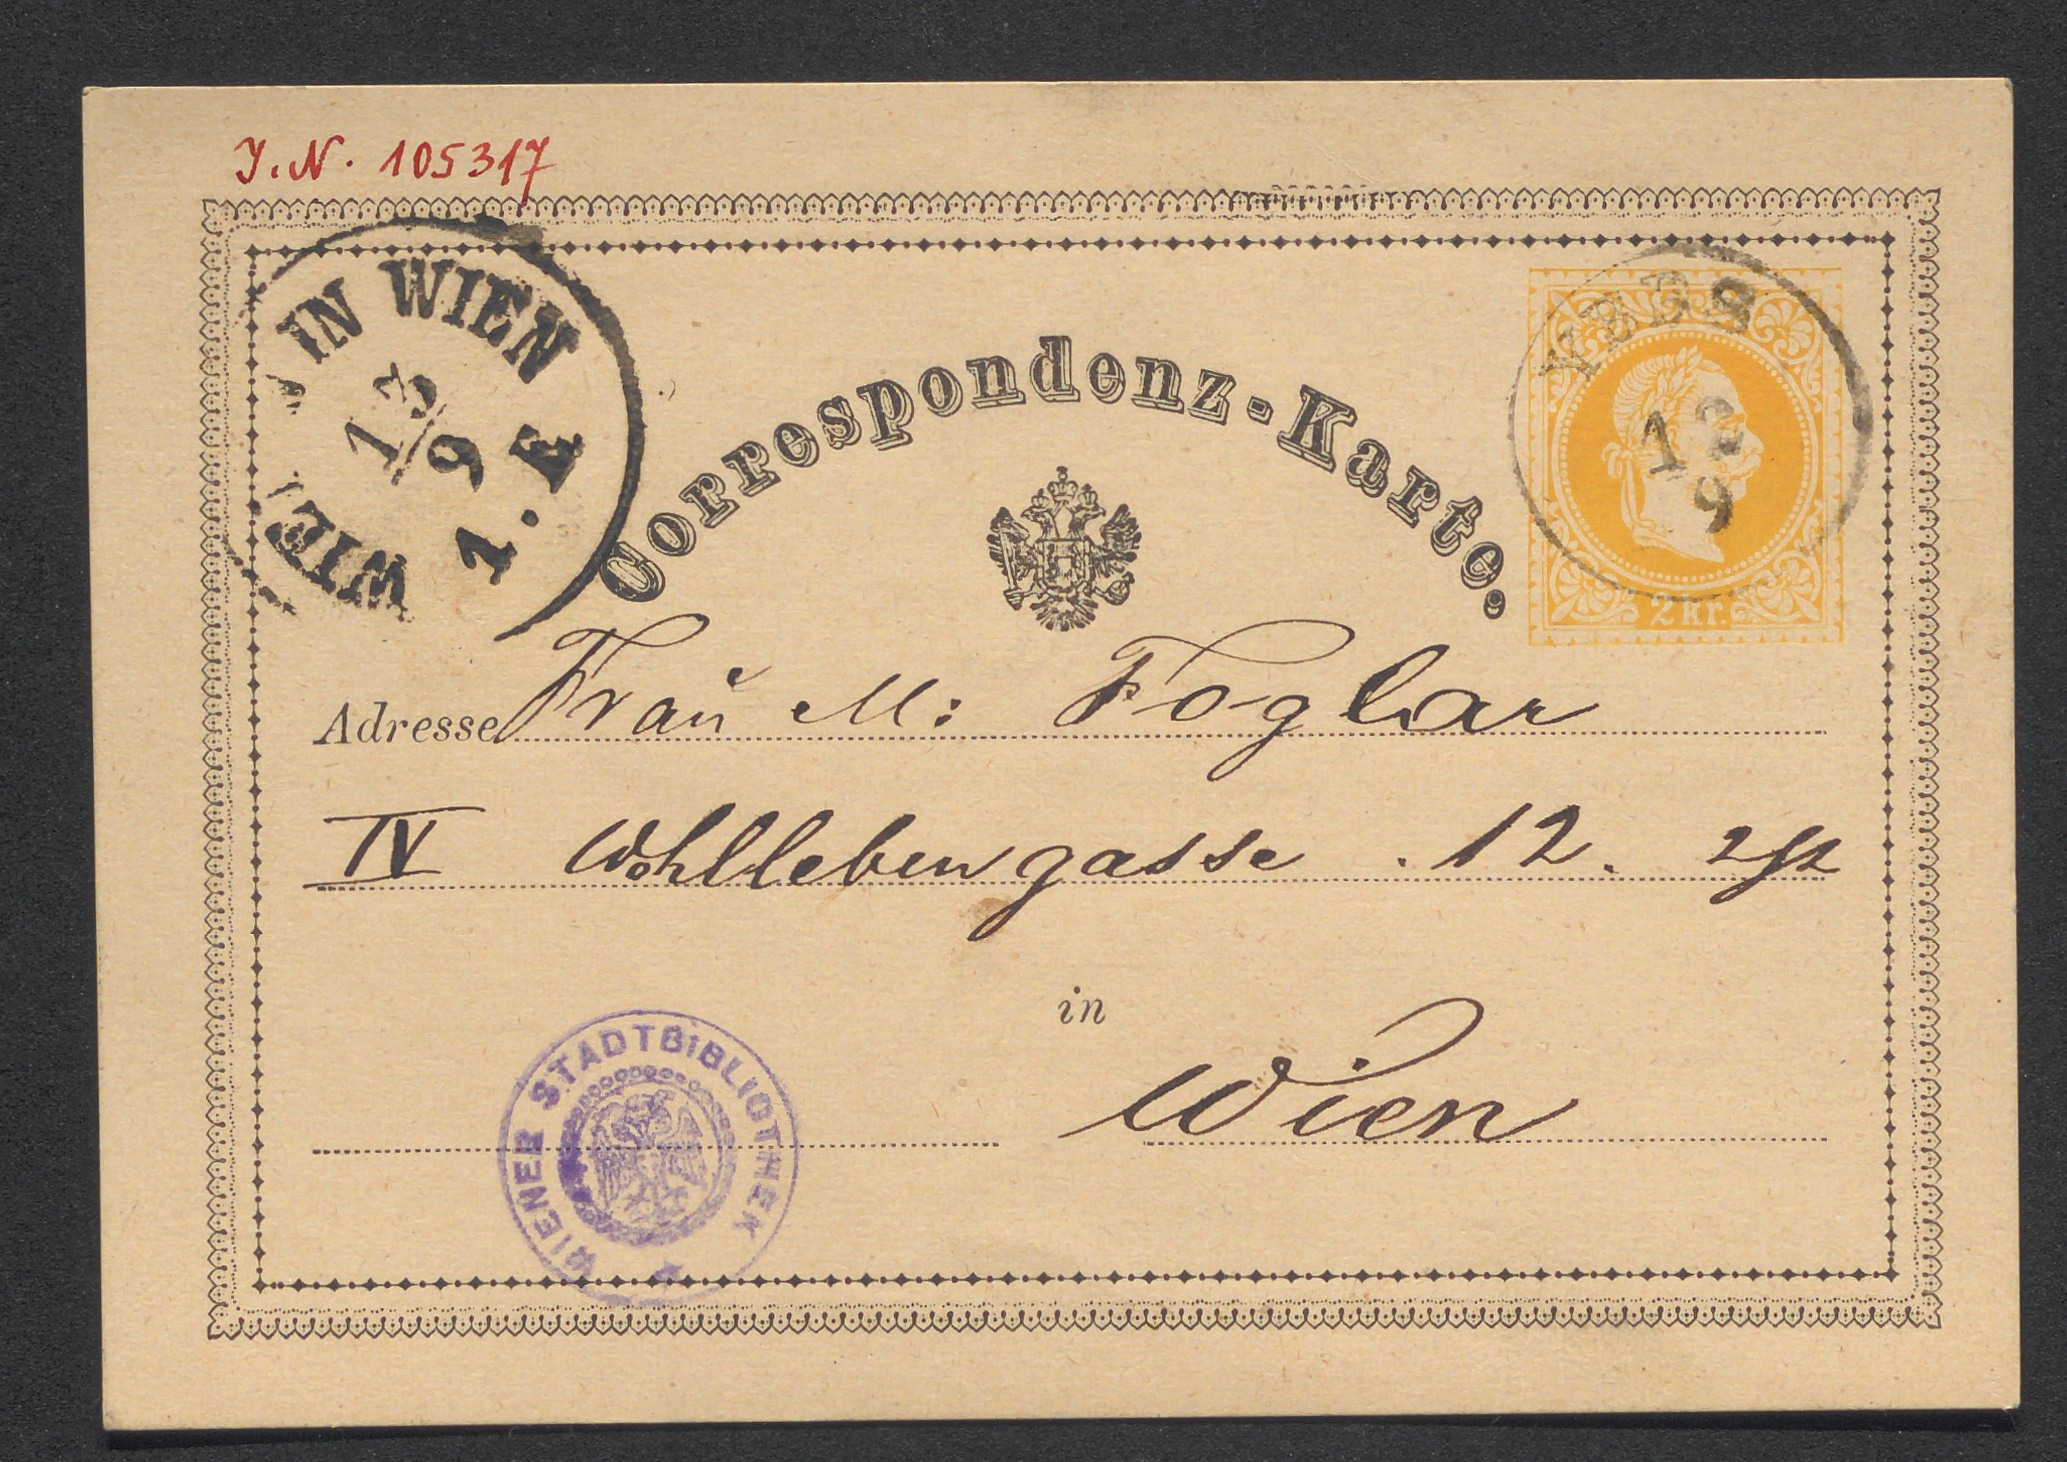 J.N. 105317
IN WIEN
13/9
1. E
WIEN
Correspondenz-Karte.
YBBS
12
9
2 kr.
Adresse Frau M: Foglar
IV Wohllebengasse . 12 . 2 St
in
Wien
WIENER STADTBIBLIOTHEK